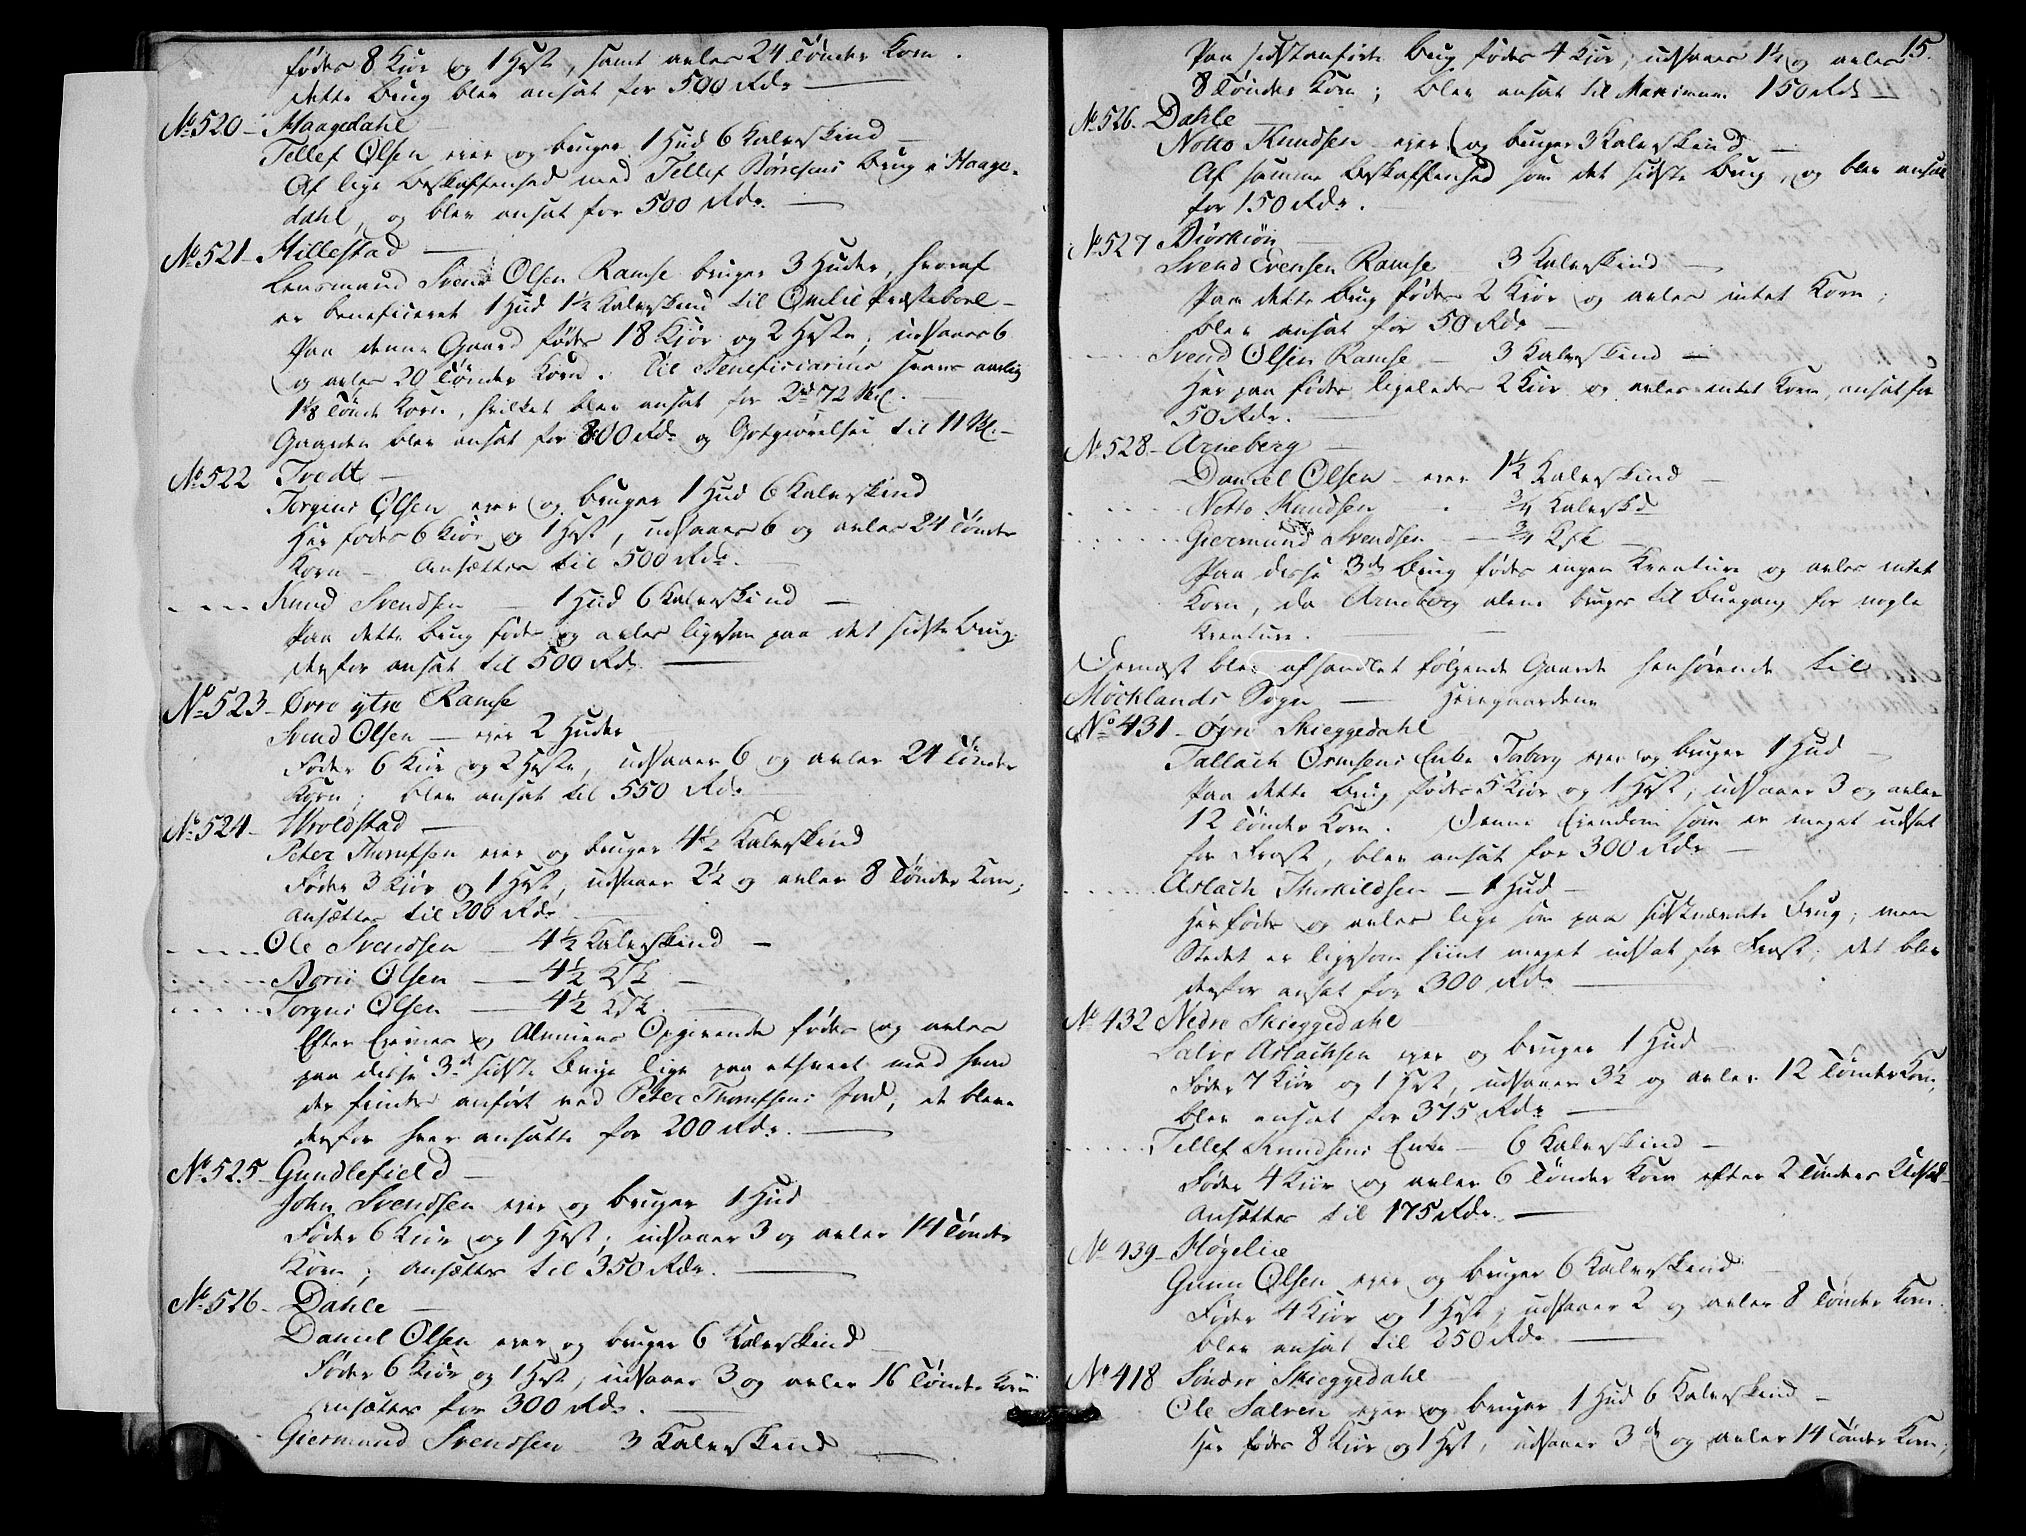 fødes 8 Kiør og 1 Hest, samt avles 24 Tønder Korn.
dette Brug blev ansat for 500 Rdr
No 520 - Haagedahl
Tellef Olsen eier og bruger 1 Hud 6 Kalvskind
Af lige Beskaffenhed med Tellef Børresens Brug i Haage-
dahl, og blev ansat for 500 Rdr.
No 521 - Hillestad
Lensmand Svend Olsen Ramse bruger 3 Huder, hvoraf
er beneficeret 1 Hud 1½ Kalveskind til Omlie Præstebord -
Paa denne Gaard fødes 18 Kiør og 2 Heste, udsaaes 6
og avles 20 Tønder Korn. Til Beneficiarius svares aarlig
1⅛ Tønde Korn, hvilket blev ansat for 2rd 72 Sk.
Gaarden blev ansat for 800 Rdr og Godtgiørelsen til 11 Sk. -
No 522 Tvedt
Torgius Olsen eier og bruger 1 Hud 6 Kalveskind
Her fødes 6 Kiør og 1 Hest, udsaaes 6 og avles 24 Tønder
Korn - Ansættes til 500 Rdr.
Knud Svendsen - 1 Hud 6 Kalveskind -
Paa dette Brug fødes og avles ligesom paa det sidste Brug.
derfor ansat til 500 Rdr.
No 523 - Øvre ytre Ramse
Svend Olsen - eier 2 Huder
Føder 6 Kiør og 2 Heste, udsaaer 6 og avler 24 Tønder
Korn; blev ansat til 550 Rdr
No 524 - Wroldstad
Peter Thomfsen eier og bruger 4½ Kalveskind
Føder 3 Kiør og 1 Hest, udsaaer 2½ og avler 8 Tønder Korn;
ansættes til 200 Rdr
Ole Svendsen - 4½ Kalveskind -
Børie Olsen - 4½ Ksk -
Torgius Olsen - 4½ Ksk.
Efter Eiernes og Almuens Opgivende fødes og avles
paa disse 3de sidste Bruge lige paa ethvert med hvad
der findes anført ved Peter Thomfsens Jord; de bleve
derfor hver ansatte for 200 Rdr.
No 525 - Gundlefield -
John Svendsen eier og bruger 1 Hud
Føder 6 Kiør og 1 Hest; udsaaer 3 og avler 14 Tønder
Korn; ansættes til 350 Rdr.
No 526 - Dahle
Daniel Olsen eier og bruger 6 Kalveskind
Føder 6 Kiør og 1 Hest; udsaaer 3 og avler 16 Tønder Korn
ansættes for 300 Rdr.
Giermund Svendsen 3 Kalveskind
15.
Paa sidstanførte Brug fødes 4 Kiør, udsaaes 1½ og avles
8 Tønder Korn; blev ansat til 150 Rdr
No 526 - Dahle
Notto Knudsen eier og bruger 3 Kalveskind -
Af samme Beskaffenhed som det sidste Brug, og blev ansat
for 150 Rdr.
No 527
Svend Evensen Ramse 3 Kalveskind -
Paa dette Brug fødes 2 Kiør og avles intet Korn;
blev ansat for 50 Rdr -
Svend Olsen Ramse - 3 Kalveskind -
Her paa fødes ligeledes 2 Kiør og avles intet Korn, ansat for
50 Rdr.
No 528 - Arneberg
Daniel Olsen - eier 1½ Kalveskind -
Notto Knudsen - ¾ Kalvskd
Giermund Svendsen - ¾ Ksk -
Paa disse 3de Brug fødes ingen Kreature og avles intet
Korn, da Arneberg alene bruges til Buegang for nogle
Kreature.
Dernæst blev afhandlet følgende Gaarde henhørende til
Mocklands Sogn - Heiegaardene
No 431 - Øvre Skieggedahl
Tallach Ormsens Enke Torborg eier og bruger 1 Hud
Paa dette Brug fødes 5 Kiør og 1 Hest, udsaaer 3 og avler
12 Tønder Korn. Denne Eiendom som er meget udsat
for Frost, blev ansat for 300 Rdr -
Aslach Therkildsen - 1 Hud -
Her fødes og avles lige som paa sidstnævnte Brug; men
Stedet er ligesom hiint meget udsat for Frost; det blev
derfor ansat for 300 Rdr
No 432 Nedre Skieggedahl
Salve Aslachsen eier og bruger 1 Hud
Føder 7 Kiør og 1 Hest, udsaaer 3½ og avler 12 Tønder Korn,
blev ansat for 375 Rdr
Tellef Knudsens Enke - 6 Kalveskind -
Føder 4 Kiør og avler 6 Tønder Korn efter 2 Tønders Udsæd -
ansættes til 175 Rdr.
No 439 - Høgelie
Gunn Olsen eier og bruger 6 Kalveskind
Føder 4 Kiør og 1 Hest, udsaaer 2 og avler 8 Tønder Korn.
blev ansat til 250 Rdr
No 418 Søndre Skieggedahl
Ole Salvesen eier og bruger 1 Hud 6 Kalveskind -
Her fødes 8 Kiør og 1 Hest, udsaaer 3 og avler 14 Tønder Korn;